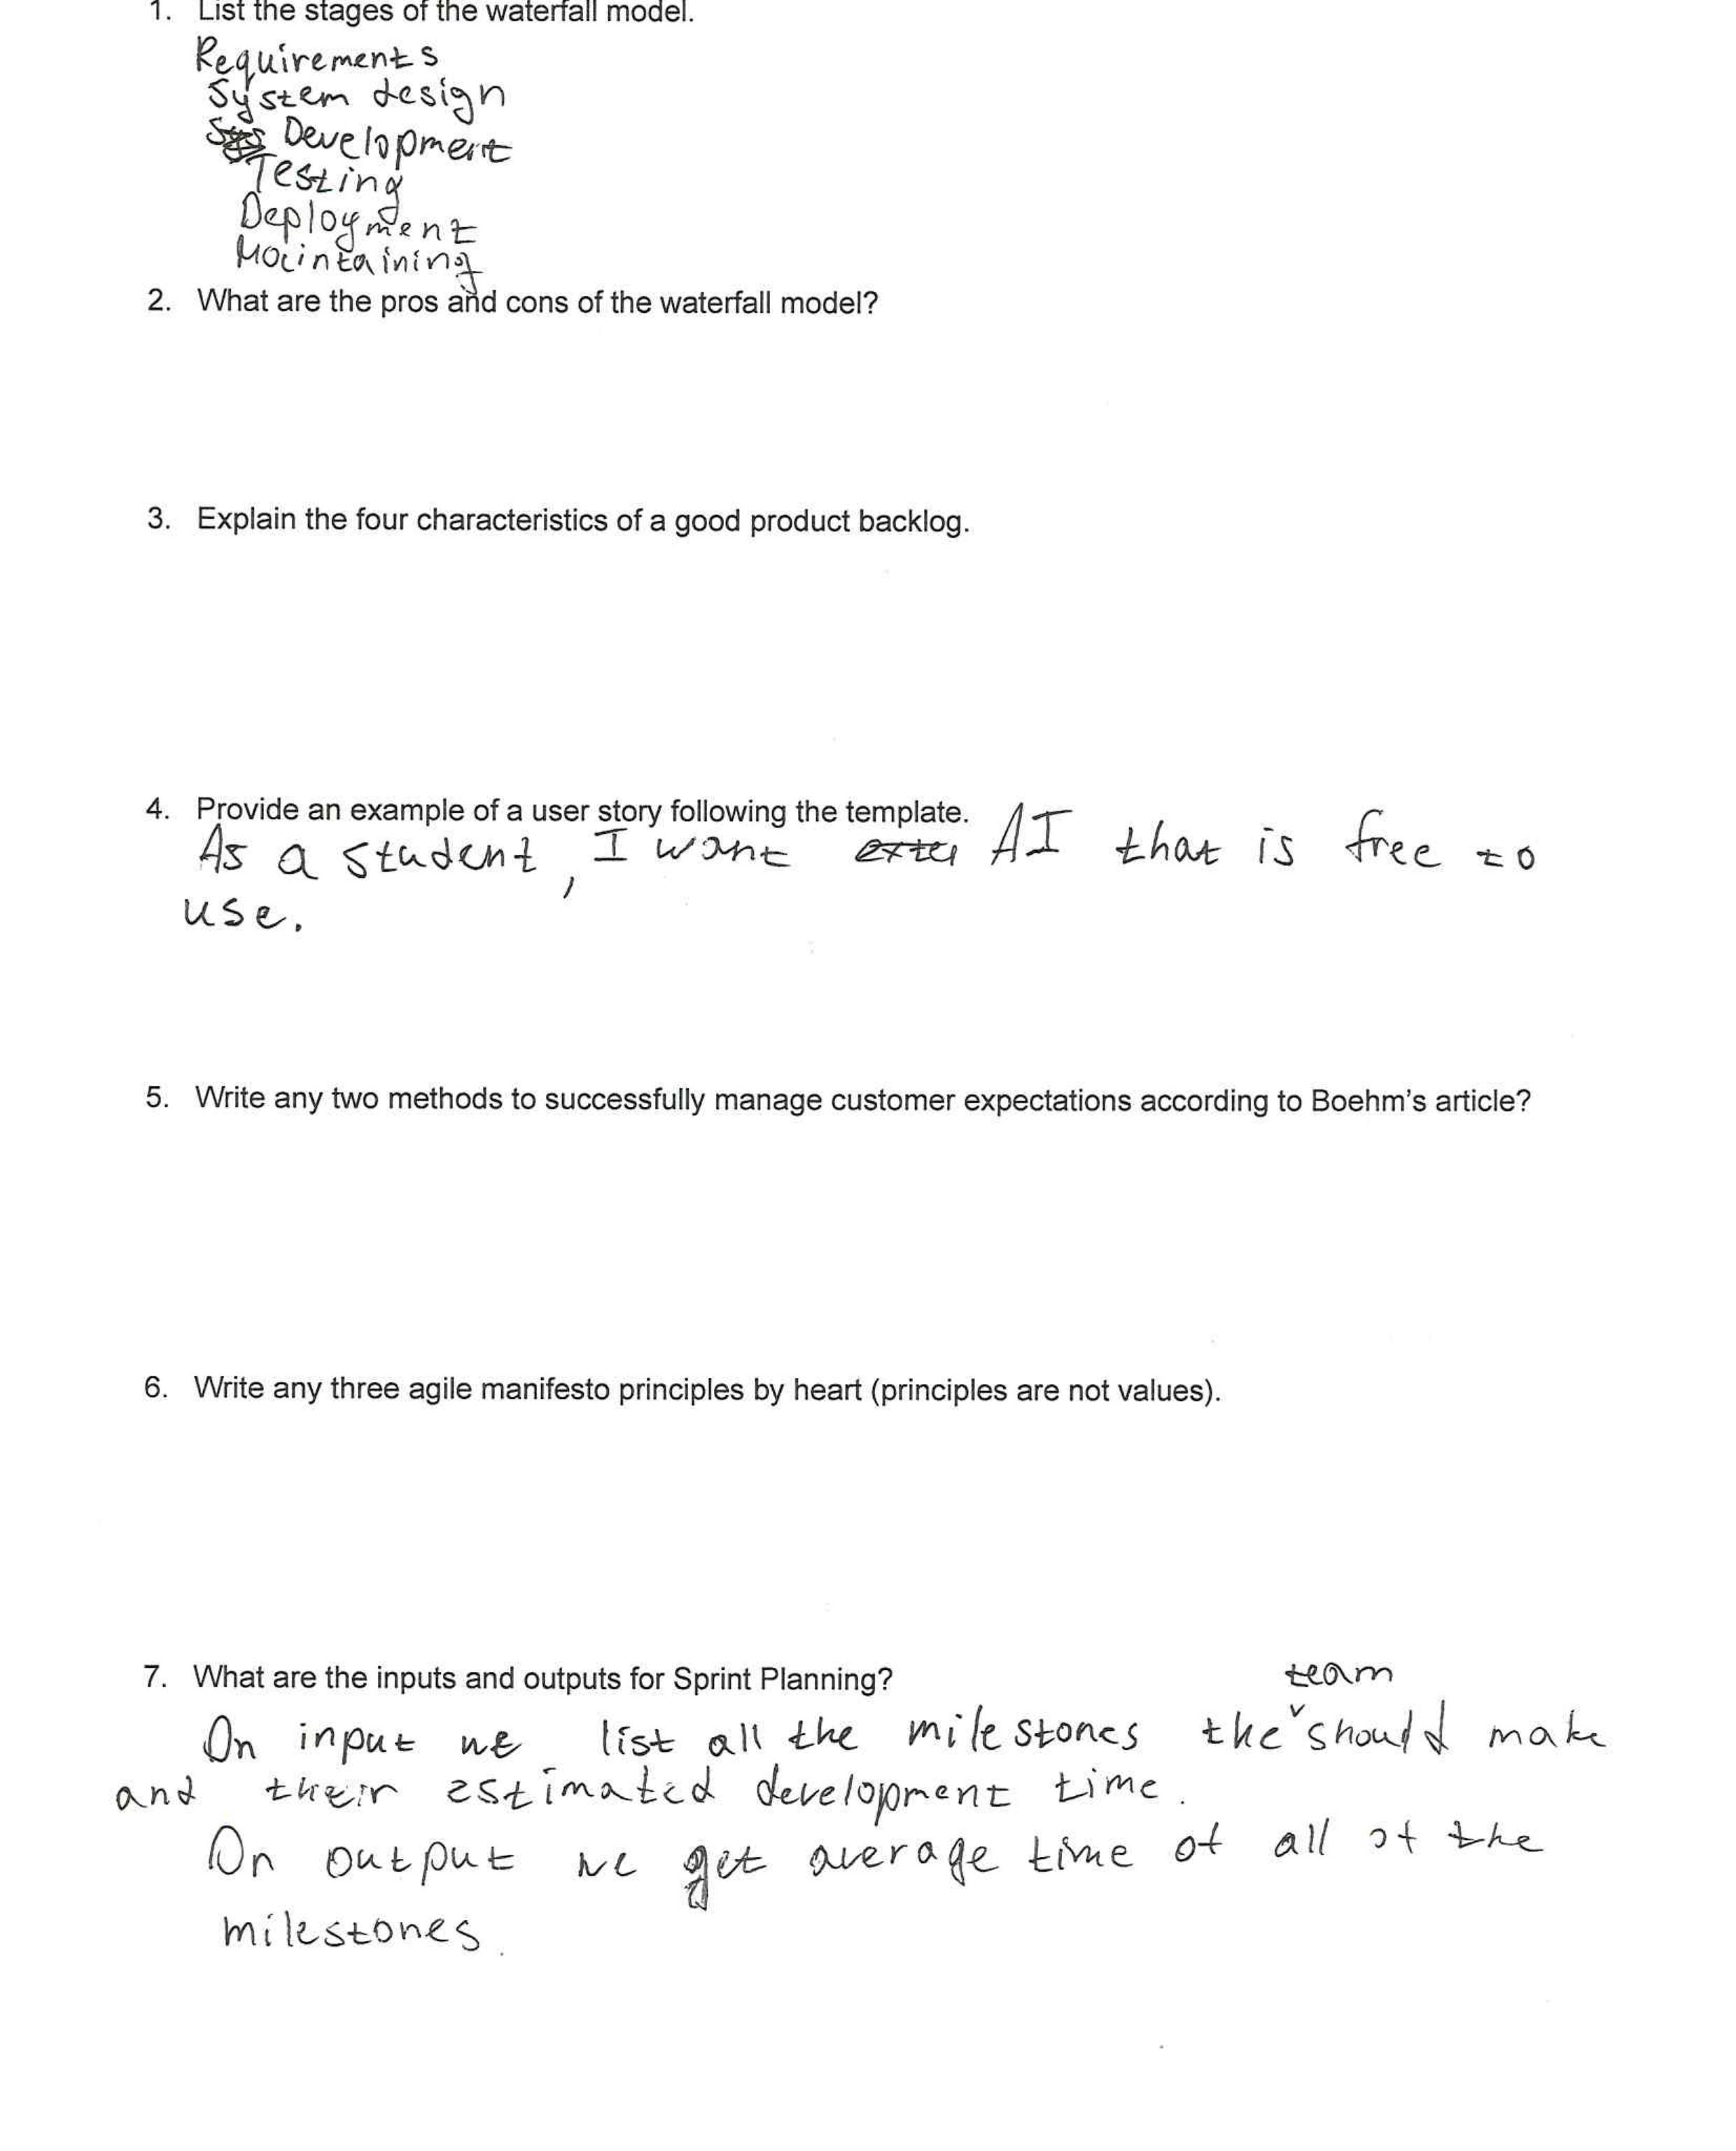 1. List the stages of the waterfall model.
Requirements
System design
Development
Testing
Deployment
Maintaining
2. What are the pros and cons of the waterfall model?
3. Explain the four characteristics of a good product backlog.
4. Provide an example of a user story following the template.
As a student, I want AI that is free to
use.
5. Write any two methods to successfully manage customer expectations according to Boehm's article?
6. Write any three agile manifesto principles by heart (principles are not values).
7. What are the inputs and outputs for Sprint Planning?
On input we list all the milestones the team should make
and their estimated development time.
On output we get average time of all of the
milestones.